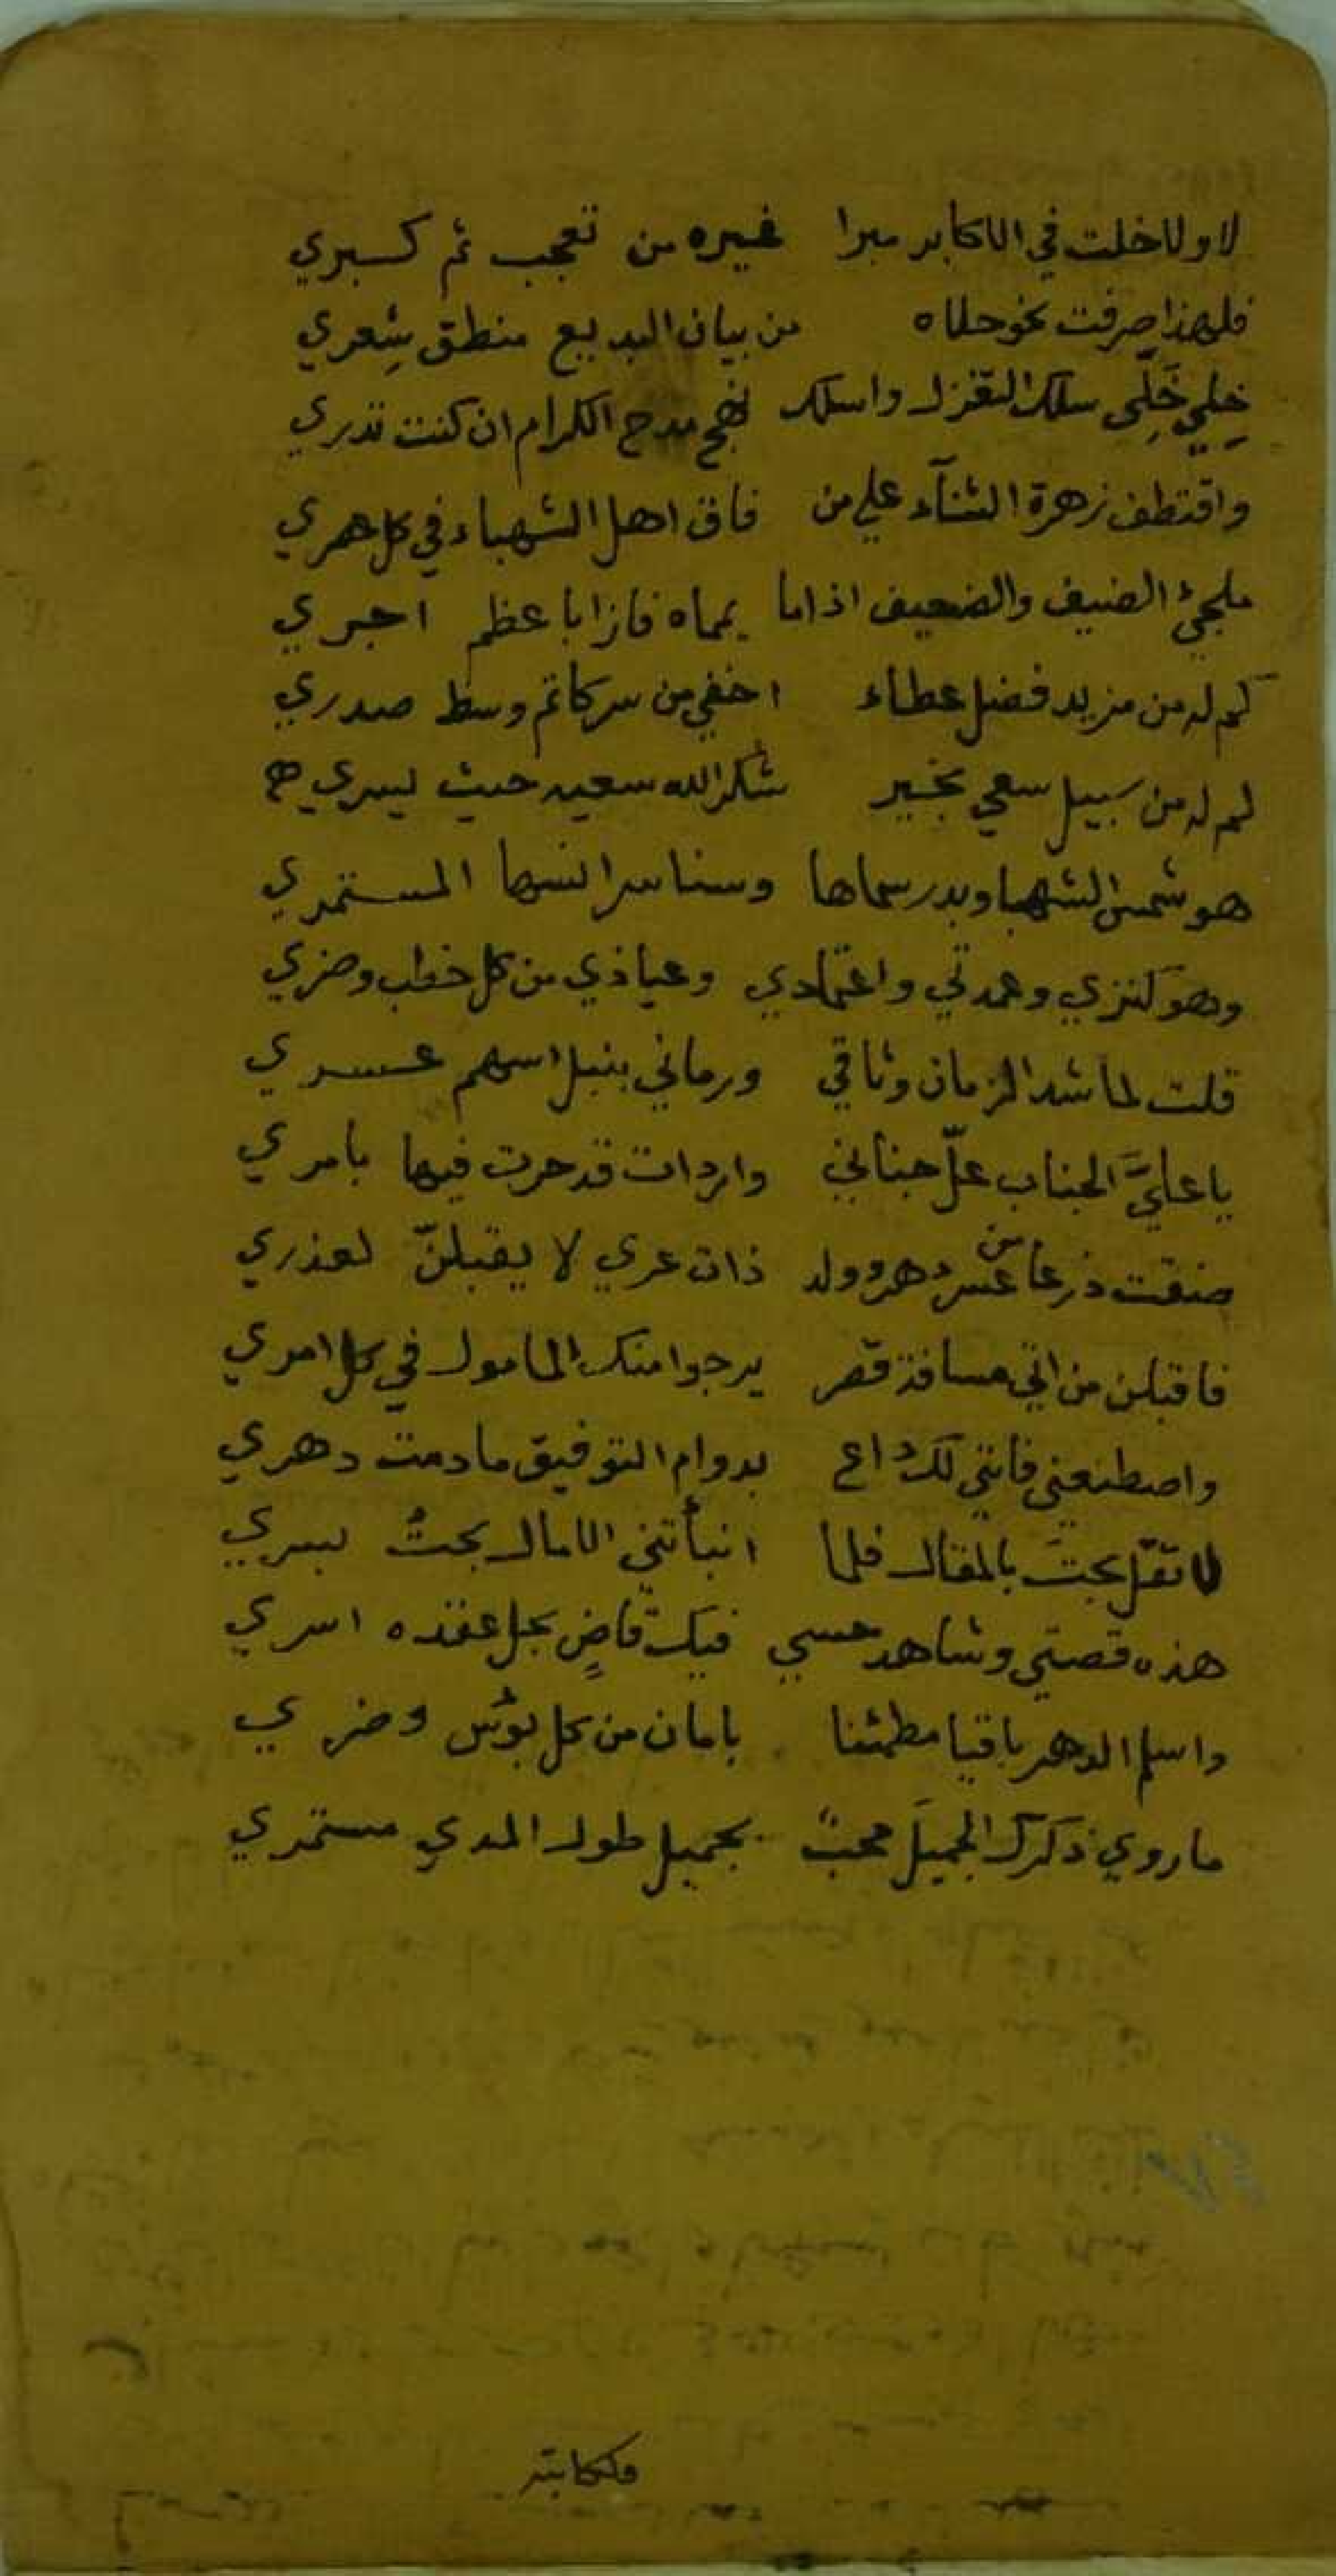 لا ولا خلت في الاكابر مبرا غيره من تعجب ثم كسبري
فلهذا صرفت نحو حلاه من بيان البديع منطق شِعري
خِلِّي خَلِّي سلك التغزل واسلك نهج مدح الكرام ان كنت تدري
واقتطف زهرة الثنآء علي من فاق اهل الشهباء في كل هري
ملجئ الضيف والضعيف اذا ما يماه فازا باعظم اجري
كم له من مزيد فضل عطاء اخفي من سر كاتم وسط صدري
كم له من سبيل سعي بخير شكر الله سعيه حيث يسري
هو شمس الشهبا وبدر سماها وسنا سر انسها المستمري
وهو كنزي وعمدتي واعتمادي وعياذي من كل خطب وضري
قلت لما شد الزمان وثاقي ورماني بنبل اسهم عسري
يا عليَّ الجناب علّ جناني واردات قد حرت فيها بامري
ضقت ذرعا من عسر دهر وولد ذات عري لا يقبلنّ لعذري
فاقبلن من اتي مسافة قصر يرجوا منك المامول في كل امري
واصطنعني فانني لك داع بدوام التوفيق ما دمت دهري
لا تقل بحتَ بالمقال فلما انبأتني الامال بحتُ بسري
هذه قصتي وشاهد حسبي فيك قاضٍ بحل عقده اسري
واسلم الدهر باقيا مطمئنا بامان من كل بؤس وضري
ما روي ذكرك الجميلَ محبٌ بجميل طول المدي مستمري